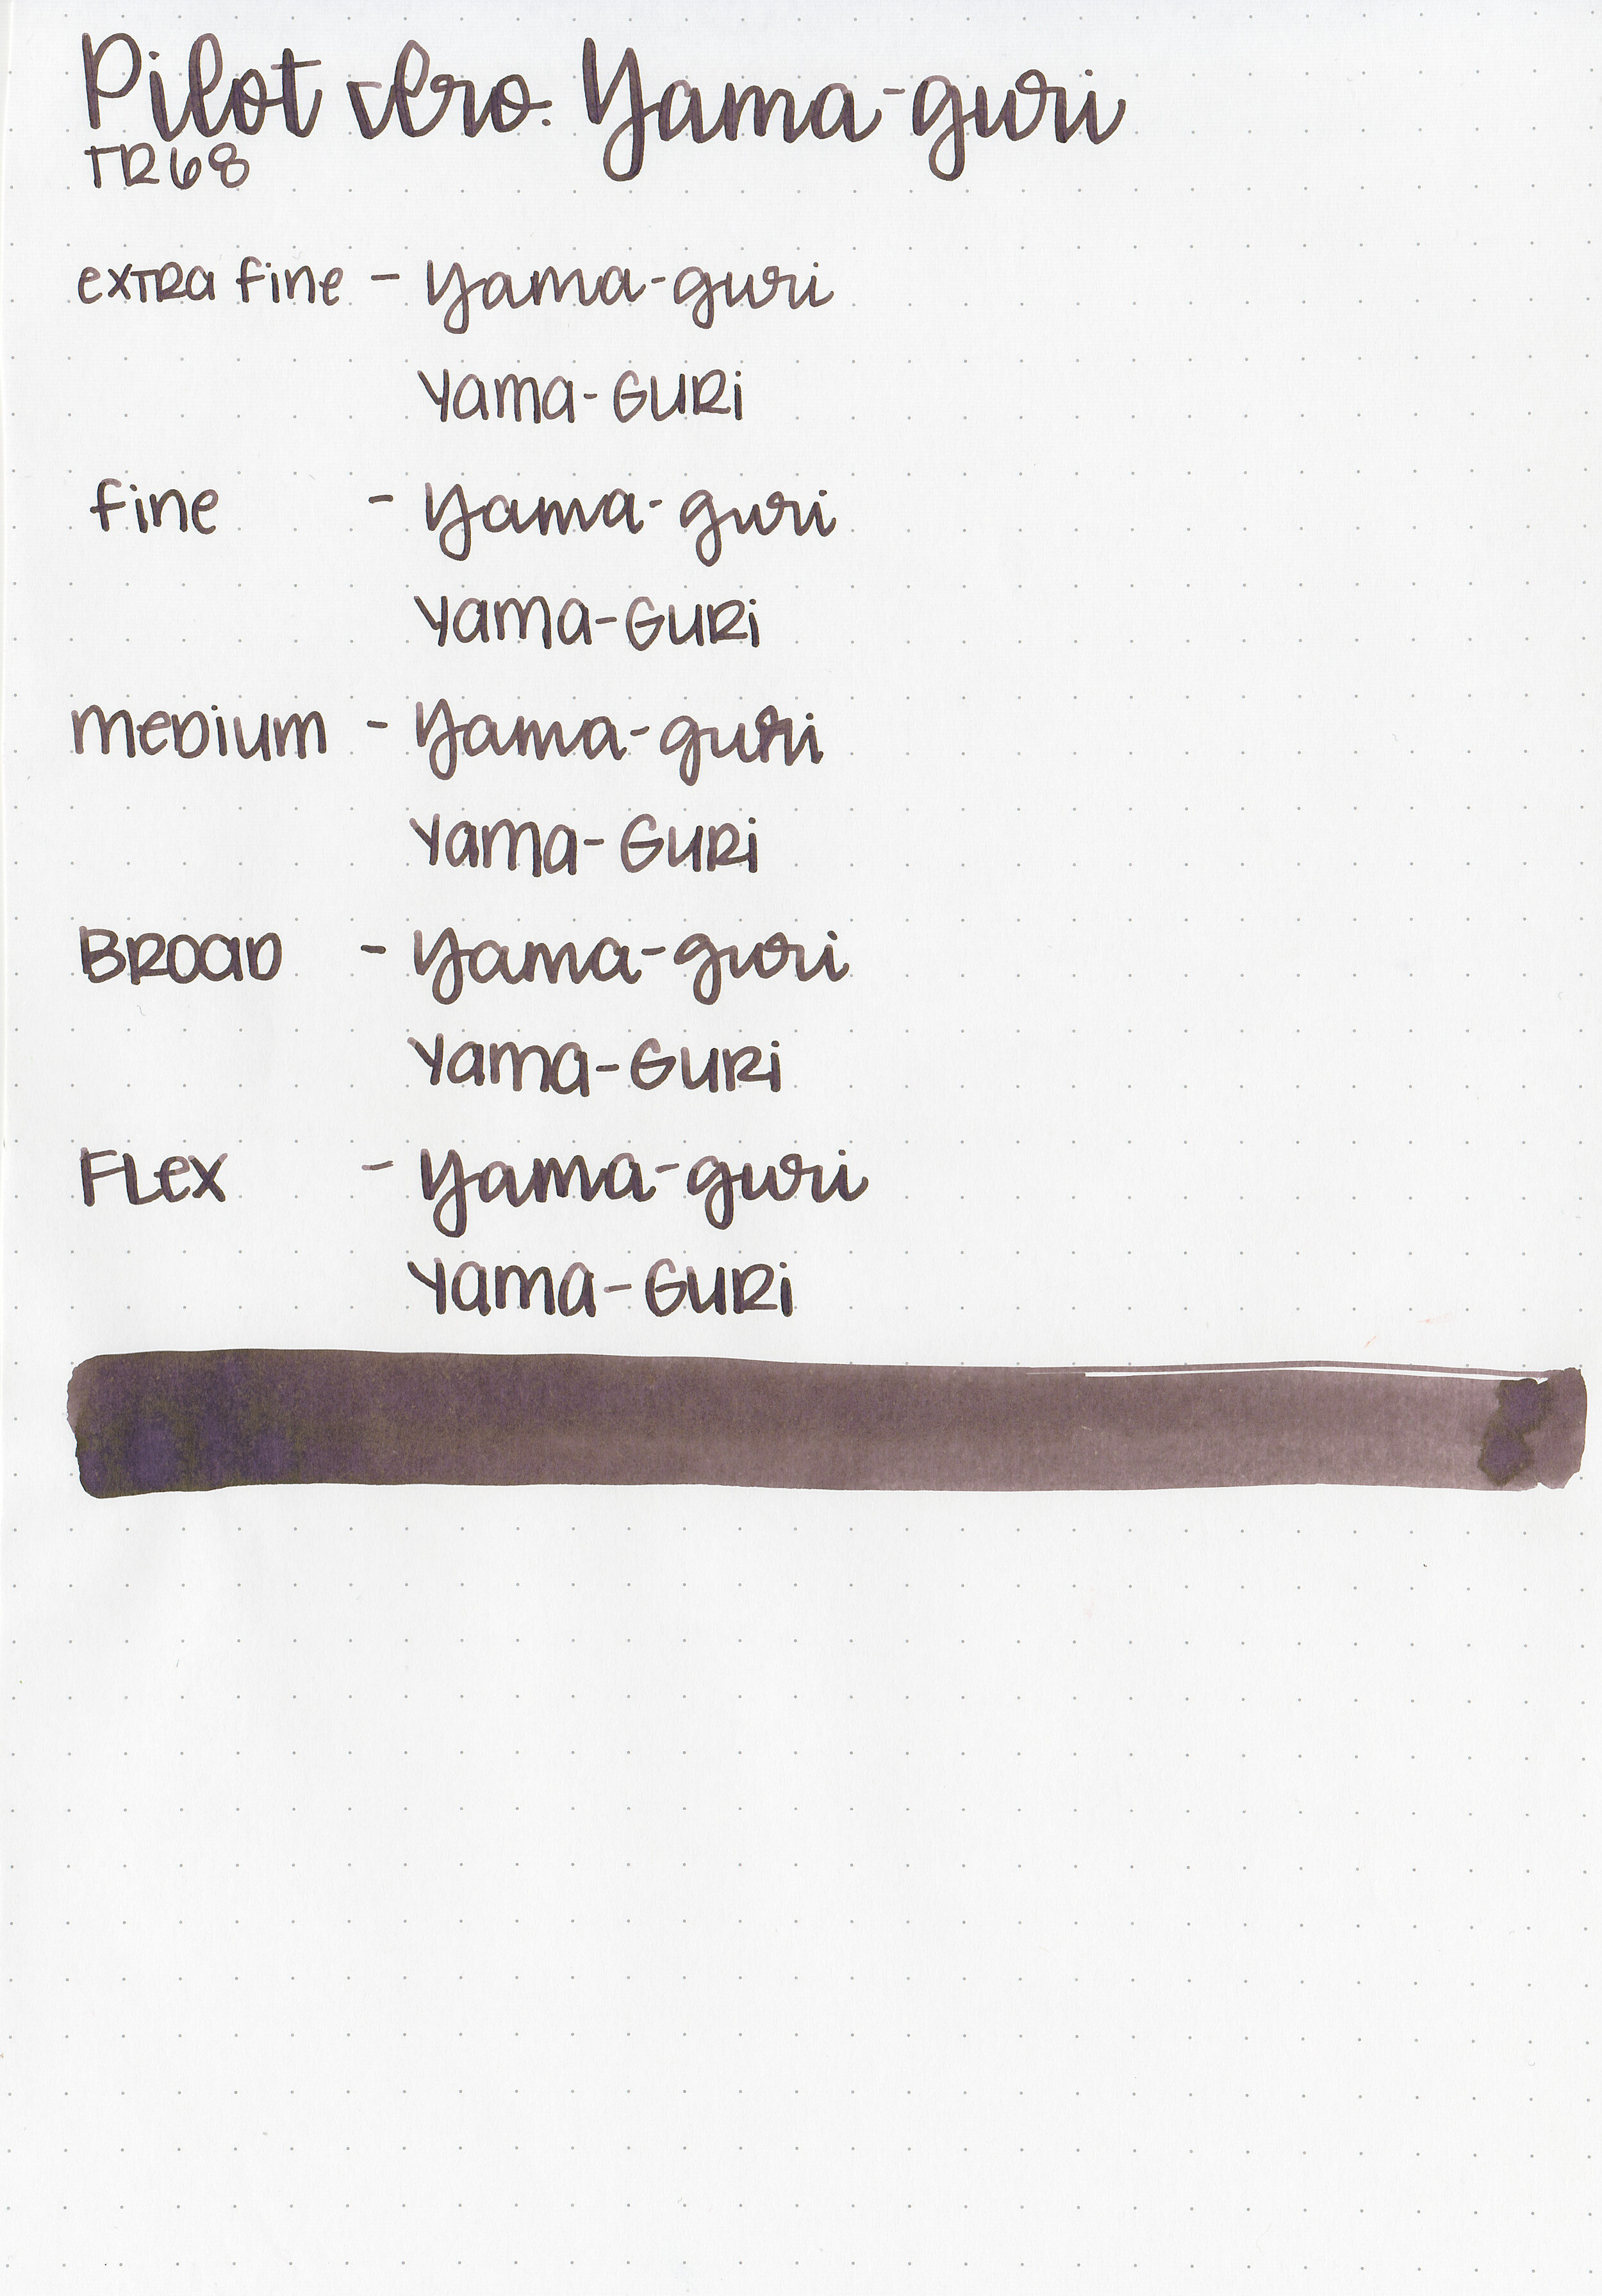 Pilot iro. Yama-guri
TR68
extra fine - Yama-guri
Yama-Guri
fine - Yama-guri
Yama-Guri
medium - Yama-guri
Yama-Guri
Broad - Yama-guri
Yama-Guri
Flex - Yama-guri
Yama-Guri